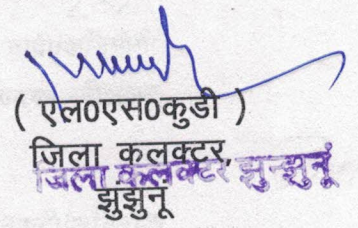 ( एल0एस0कुडी )
जिला कलक्टर,
जिला कलक्टर झुन्झुनूं
झुंझुनू